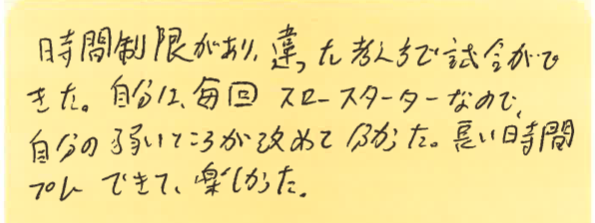 時間制限があり、違った考え方で試合がで
きた。自分は、毎回 スロースターターなので、
自分の弱いところが改めて分かった。長い時間
プレーできて、楽しかった。